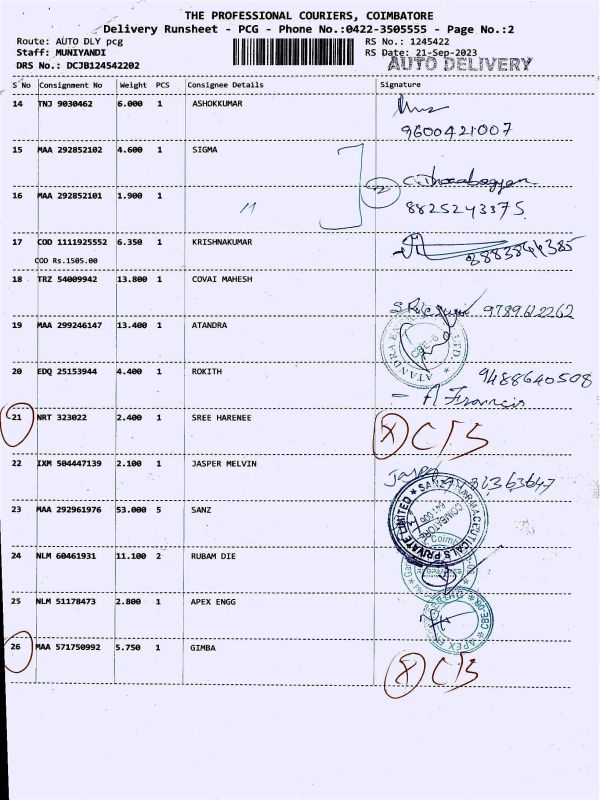 THE PROFESSIONAL COURIERS, COIMBATORE
Delivery Runsheet - PCG - Phone No.:0422-3505555 - Page No.:2
Route: AUTO DLY pcg RS No.: 1245422
Staff: MUNIYANDI RS Date: 21-Sep-2023
DRS No.: DCJB124542202 AUTO DELIVERY
S No Consignment No Weight PCS Consignee Details Signature
14 TNJ 9030462 6.000 1 ASHOKKUMAR
9600421007
15 MAA 292852102 4.600 1 SIGMA
2
16 MAA 292852101 1.900 1 "
8825243375
17 COD 1111925552 6.350 1 KRISHNAKUMAR
COD Rs.1505.00
18 TRZ 54009942 13.800 1 COVAI MAHESH
9789612262
19 MAA 299246147 13.400 1 ATANDRA
20 EDQ 25153944 4.400 1 ROKITH
9488640508
- A Francis
21 NRT 323022 2.400 1 SREE HARENEE
X C/S
22 IXM 504447139 2.100 1 JASPER MELVIN
Jasper
23 MAA 292961976 53.000 5 SANZ
SANZ PHARMACEUTICALS PRIVATE LIMITED
COIMBATORE
24 NLM 60461931 11.100 2 RUBAM DIE
25 NLM 51178473 2.800 1 APEX ENGG
APEX
26 MAA 571750992 5.750 1 GIMBA
X C/S